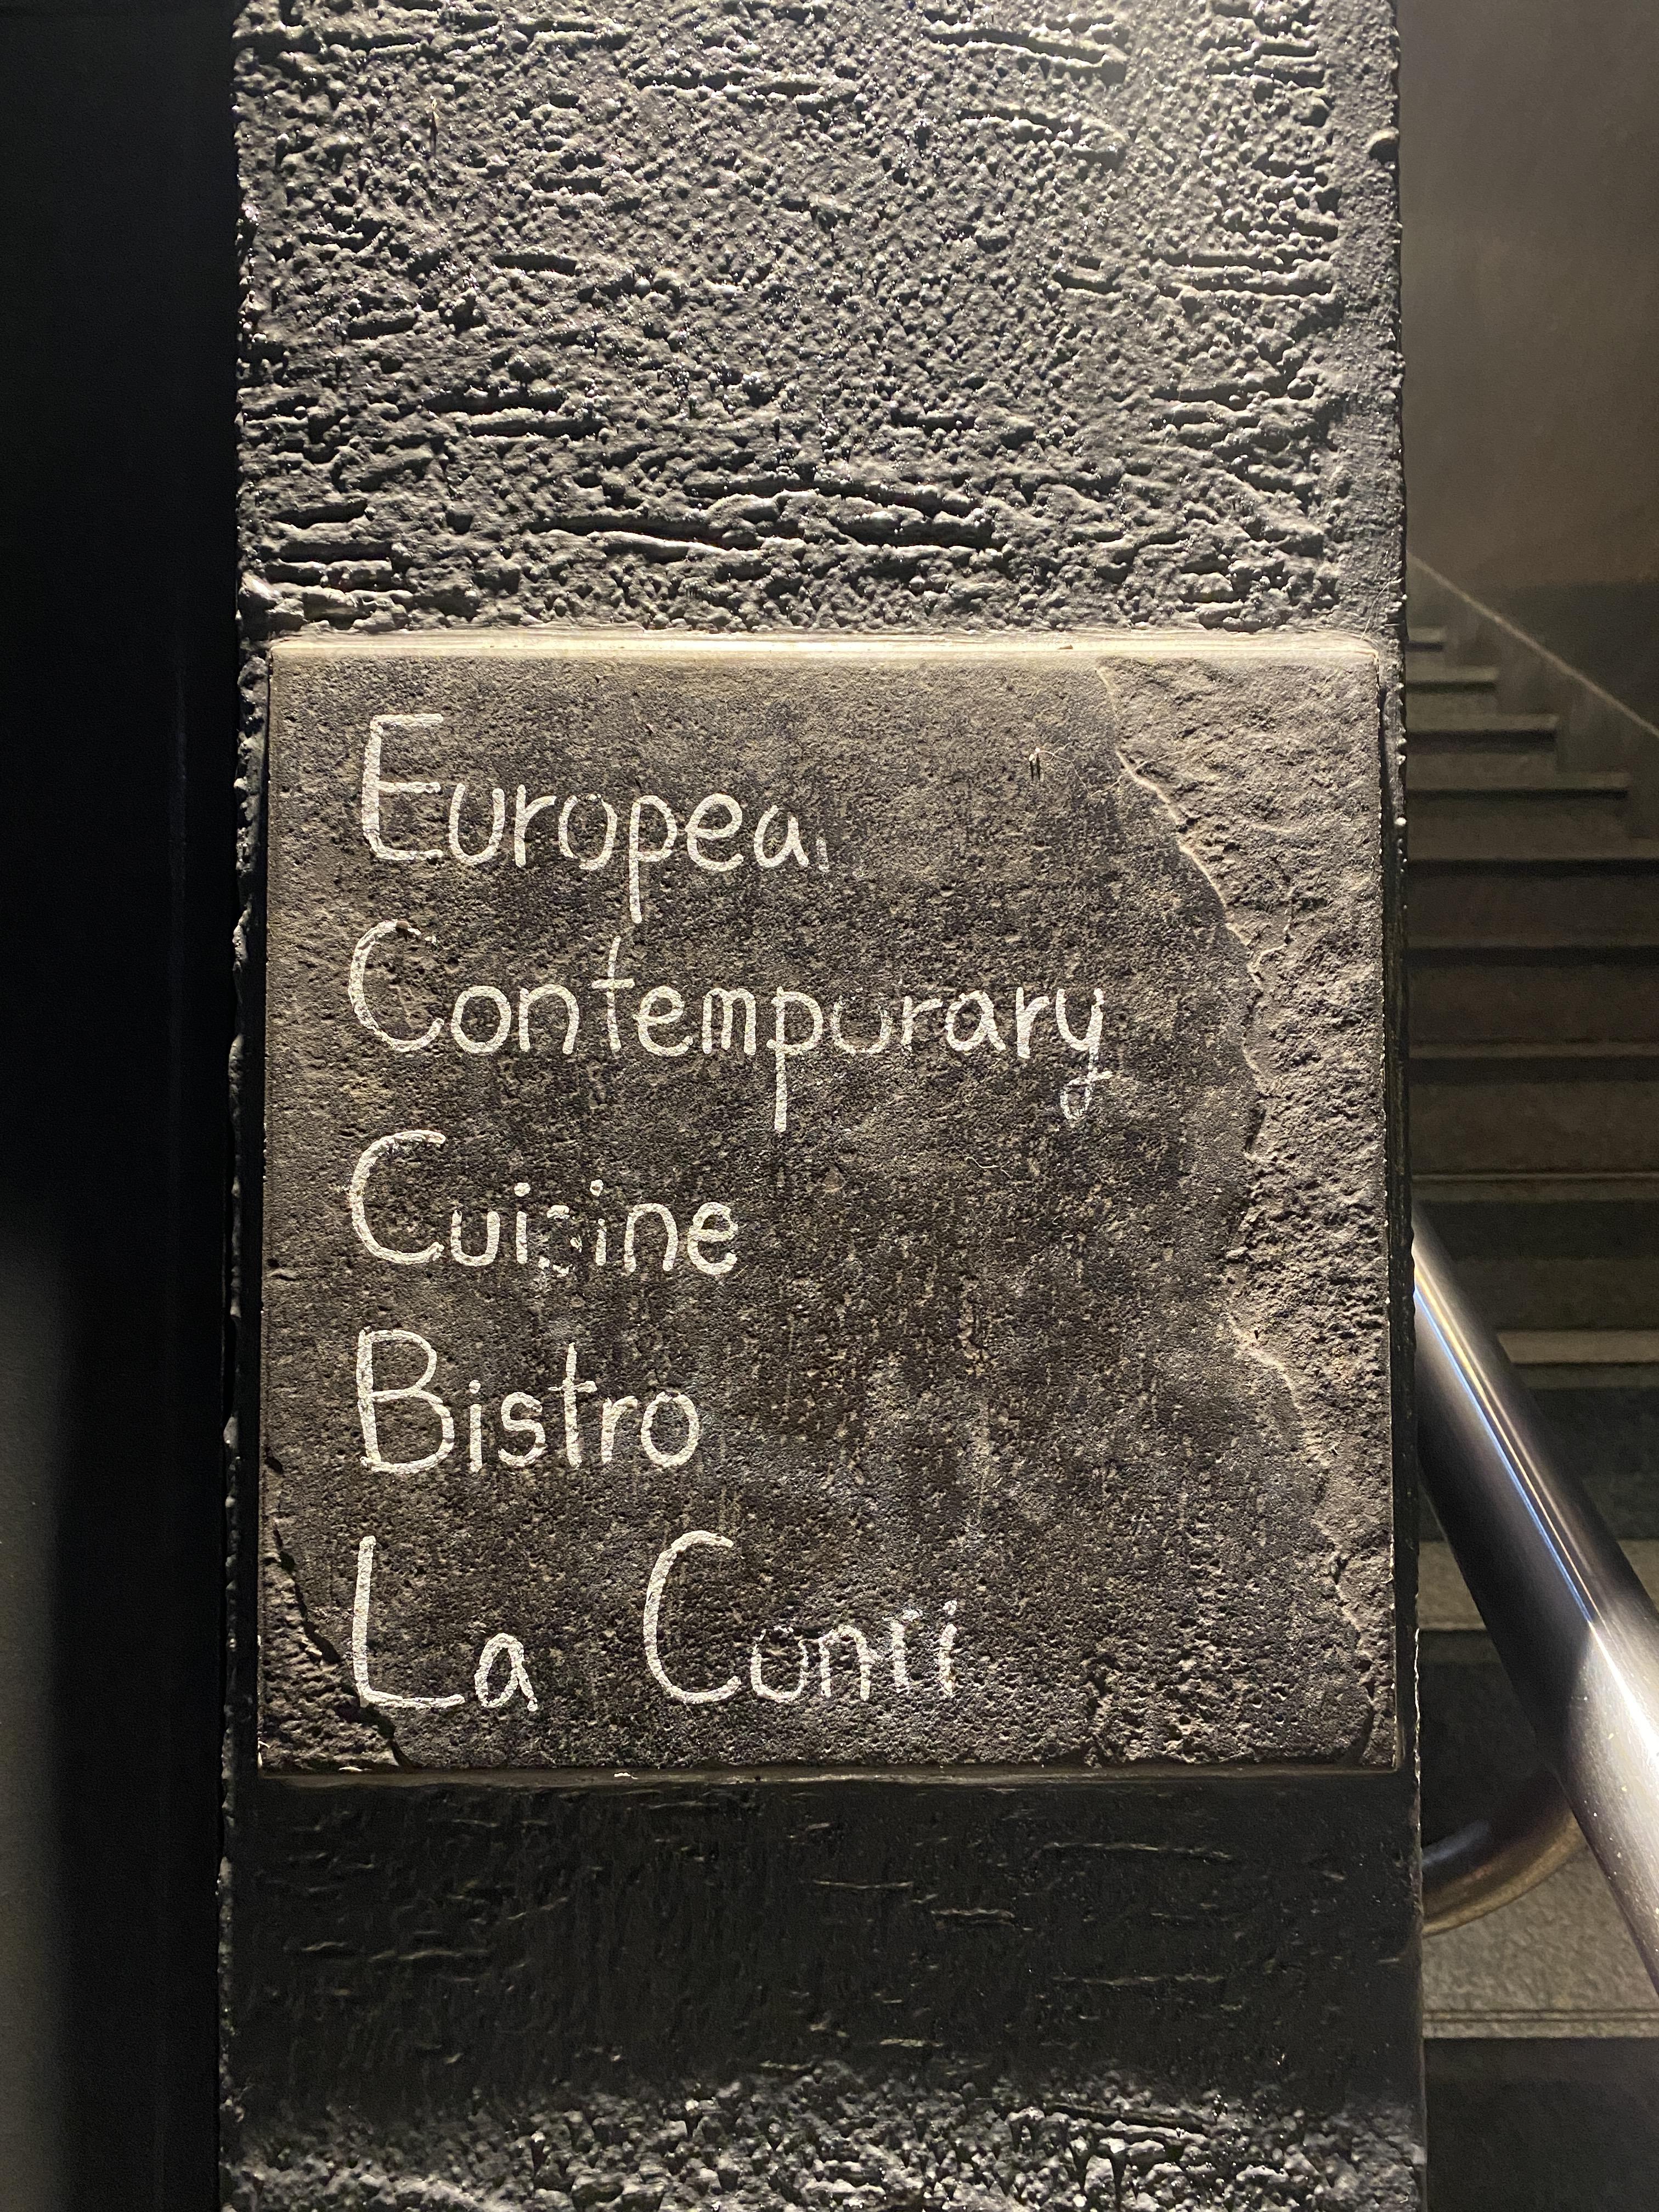 European
Contemporary
Cuisine
Bistro
La Conti